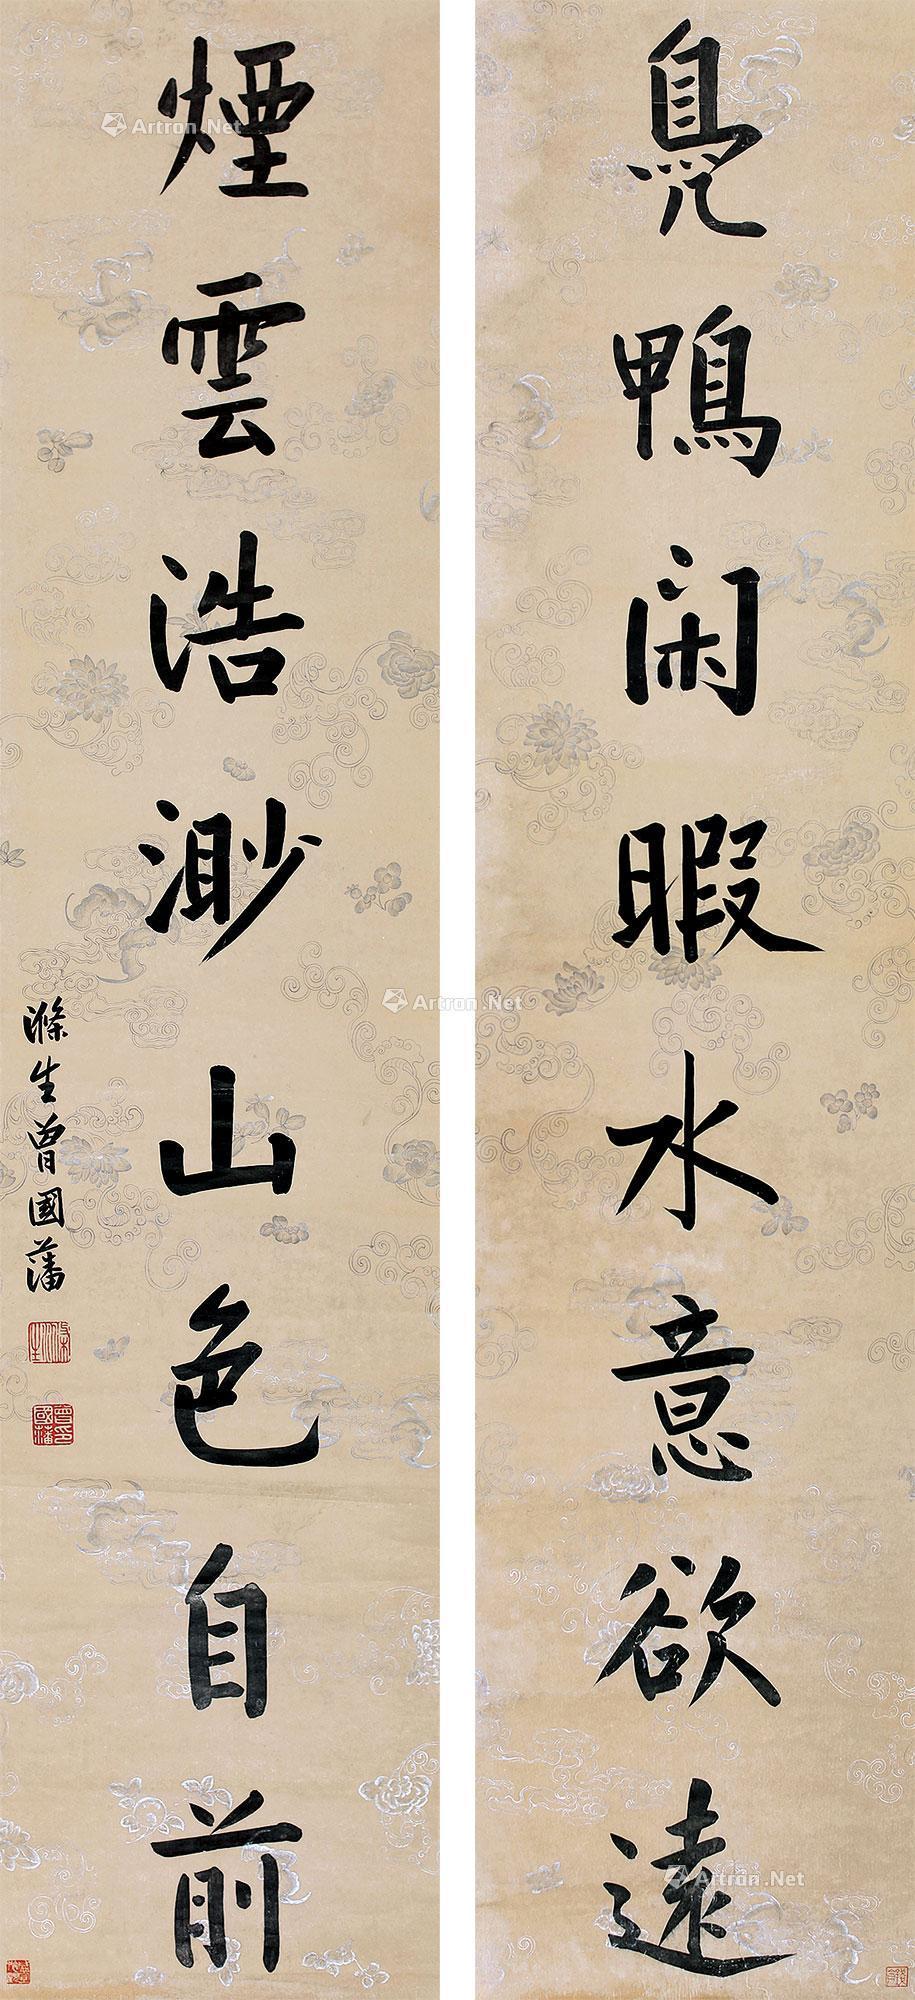 鳧鴨闲暇水意欲遠
煙雲浩渺山色自前
滌生曾國藩
滌生
曾國藩印
Artron.Net
Artron.Net
Artron.Net